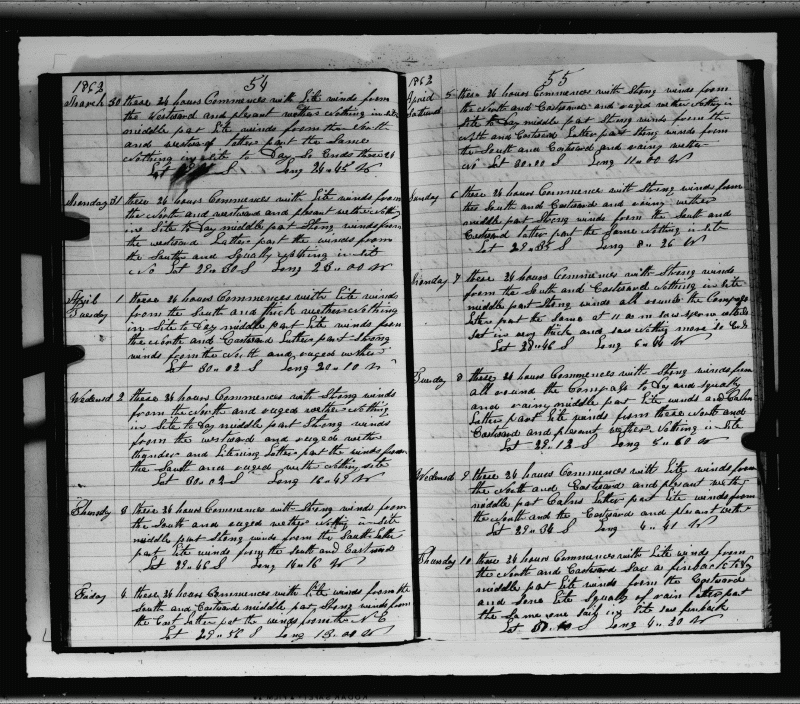 1862 54
March 30 these 24 hours Commences with Lite winds from
the Westward and plesant wether Nothing in site
middle part Lite winds from the North
and westward latter part the Same
Nothing in site to Day So Ends these 24
Lat S Long 24=45 W
Monday 31 these 24 hours Commences with Lite winds from
the North and westward and plesant wether Nothing
in Site to Day middle part Strong winds from
the westward Latter part the winds from
the South and Squally Nothing in site
No Lat 29=50 S Long 23=00 W
April 1 these 24 hours Commences with Lite winds
Tuesday from the South and thick wether Nothing
in Site to Day middle part Lite winds from
the North and Eastward Latter part Strong
winds from the North and ruged wether
Lat 30=02 S Long 20=10 W
Wedensd 2 these 24 hours Commences with Strong winds
from the North and ruged wether Nothing
in Site to Day middle part Strong winds
from the westward and ruged wether
thunder and Litening Latter part the winds from
the South and ruged wether Nothing site
Lat 30=02 S Long 16=49 W
Thursday 3 these 24 hours Commences with Strong winds from
the South and ruged wether Nothing in site
middle part Strong winds from the South latter
part Lite winds from the South and Eastward
Lat 29=46 S Long 16=16 W
Friday 4 these 24 hours Commences with Lite winds from the
South and Eastward middle part Strong winds from
the East latter part the winds from the N E
Lat 29=56 S Long 13=00 W
1862 55
April 5 these 24 hours Commences with Strong winds from
Saturd the North and Eastward and ruged wether Nothing in
Site to Day middle part Strong winds from the
North and Eastward Latter part Strong winds from
the South and Eastward and rainy wether
No Lat 30=00 S Long 11=00 W
Sunday 6 these 24 hours Commence with Strong winds from
the South and Eastward and rainy wether
middle part Strong winds from the South and
Eastward latter part the Same Nothing in site
Lat 29=35 S Long 8=26 W
Monday 7 these 24 hours Commences with Strong winds
from the South and Eastward Nothing in site
middle part Strong winds all round the Compass
latter part the same at 11 a m saw sperm whales
set in very thick and saw Nothing more So Ends
Lat 28=46 S Long 6=44 W
Tuesday 8 these 24 hours Commences with Strong winds from
all round the Compass to Day and Squaly
and rainy middle part Lite winds and Calm
Latter part Lite winds from these North and
Eastward and plesant wether Nothing in Site
Lat 29=12 S Long 5=50 W
Wedensd 9 these 24 hours Commences with Lite winds from
the North and Eastward and plesant wether
middle part Calms Latter part Lite winds from
the North and the Eastward and plesant wether
Lat 29=34 S Long 4=41 W
Thursday 10 these 24 hours Commences with Lite winds from
the North and Eastward Saw a finback to Day
middle part Lite winds from the Eastward
and Some Lite Squalls of rain latter part
the Same one Sail in Site saw finback
Lat S Long 4=20 W